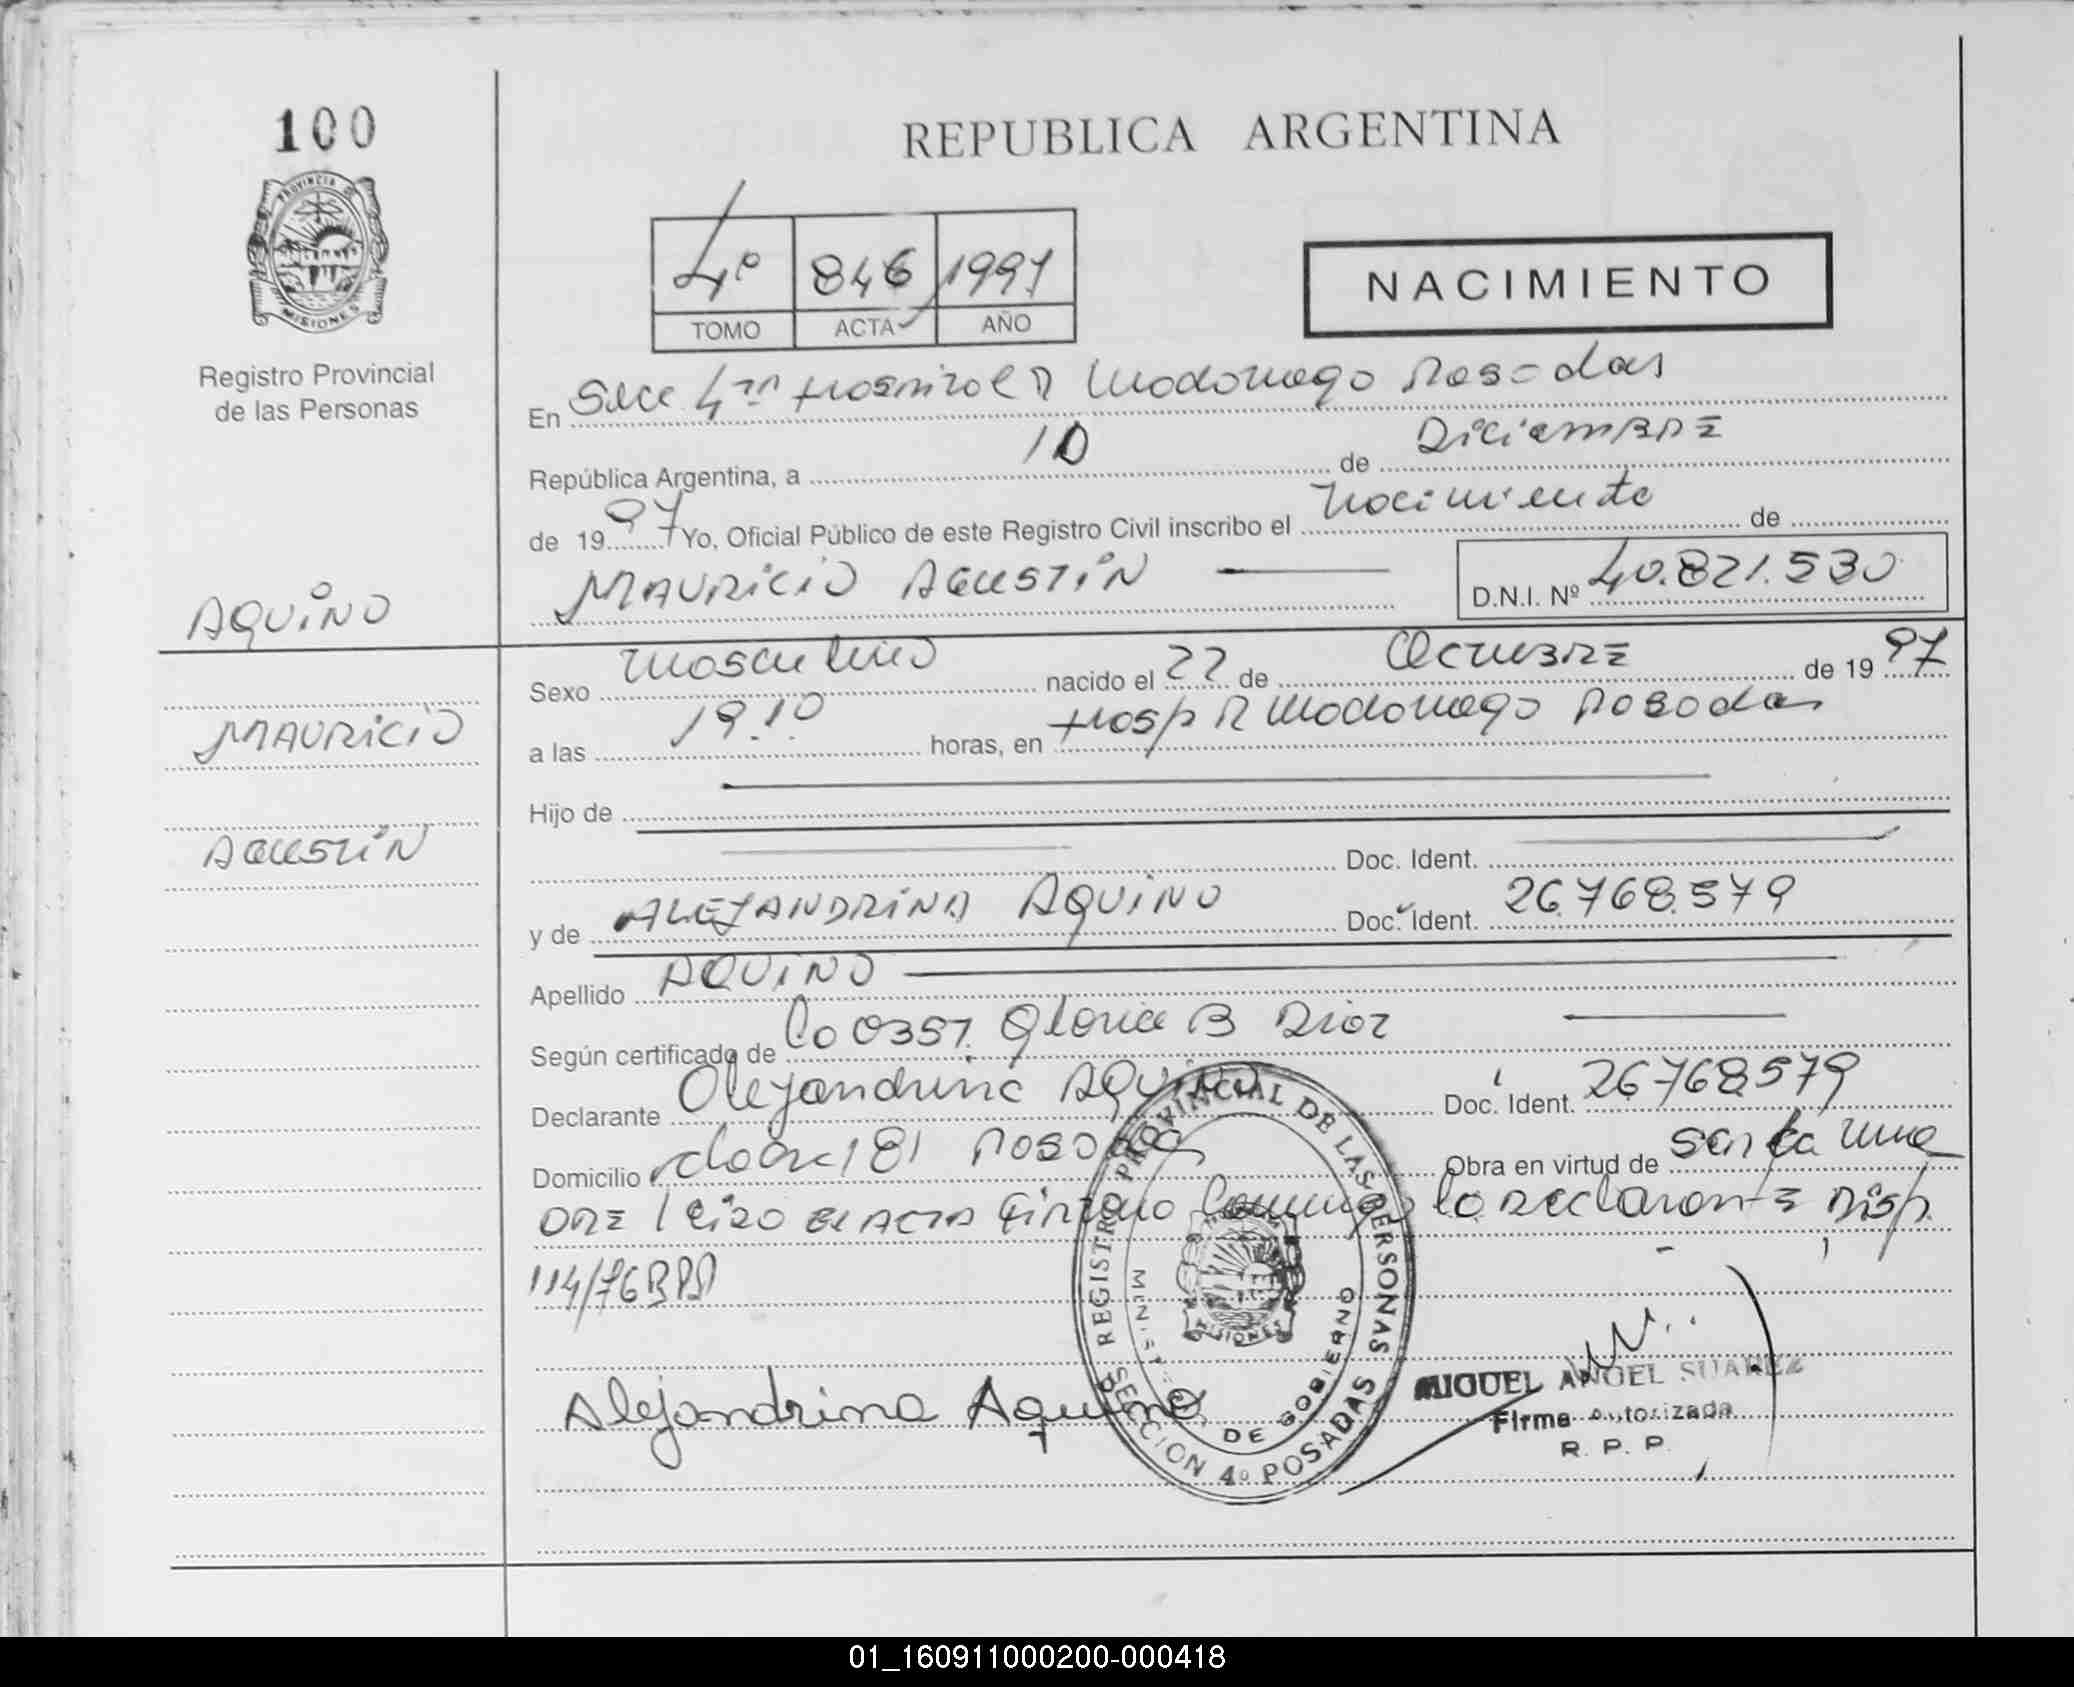 100
REPUBLICA ARGENTINA
PROVINCIA DE
MISIONES
Registro Provincial
de las Personas
4º 846 1997
TOMO ACTA AÑO
NACIMIENTO
En Secc 4ta Hospital R Madariaga Posadas
República Argentina, a 10 de Diciembre
de 1997 Yo, Oficial Público de este Registro Civil inscribo el nacimiento de
MAURICIO AGUSTIN D.N.I. Nº 40.821.530
AQUINO
MAURICIO
AGUSTIN
Sexo masculino nacido el 22 de Octubre de 1997
a las 19.10 horas, en Hosp R Madariaga Posadas
Hijo de
Doc. Ident.
y de ALEJANDRINA AQUINO Doc. Ident. 26.768.579
Apellido AQUINO
Según certificado de Co 0351 Gloria B Diaz
Declarante Alejandrina AQUINO Doc. Ident. 26768579
Domicilio 181 Posadas Obra en virtud de ser la ma
DRE leido el ACTA Firmano Conmigo la Declarante Disp.
114/76 BPD
Alejandrina Aquino
REGISTRO PROVINCIAL DE LAS PERSONAS
SECCION 4º POSADAS
DE GOBIERNO
MISIONES
MIGUEL ANGEL SUAREZ
Firma Autorizada
R. P. P.
01_160911000200-000418